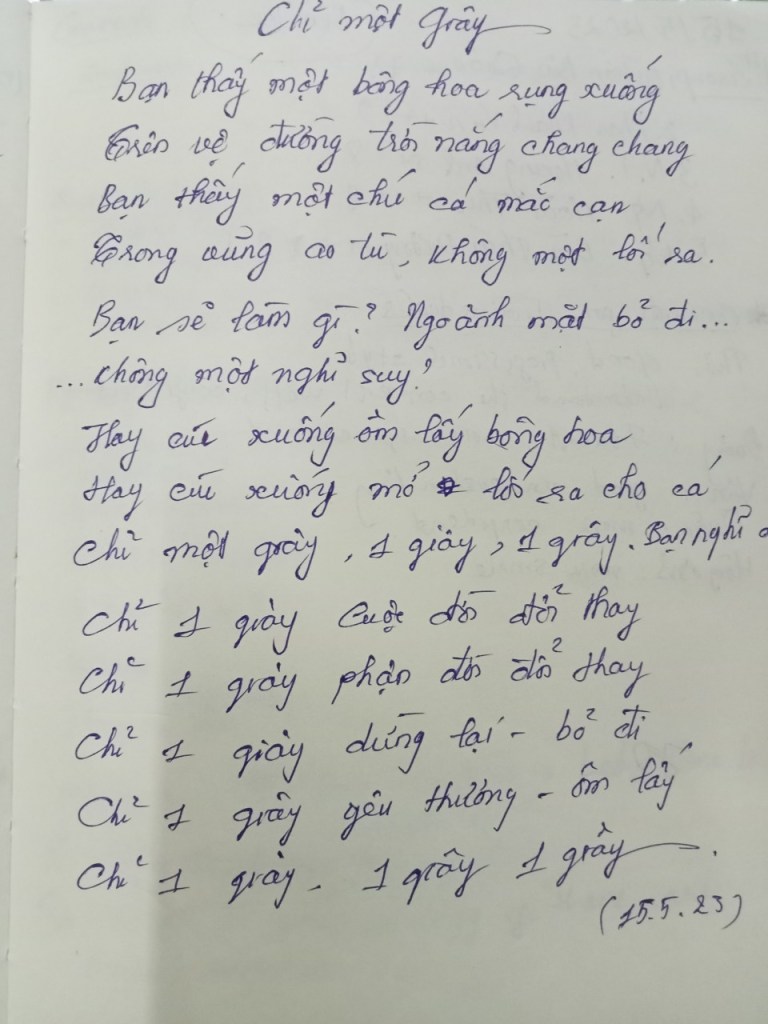 Chỉ một giây
Bạn thấy một bông hoa rụng xuống
Trên vệ đường trời nắng chang chang
Bạn thấy một chú cá mắc cạn
Trong vũng ao tù, không một lối ra.
Bạn sẽ làm gì? Ngoảnh mặt bỏ đi...
... không một nghĩ suy?
Hay cúi xuống ôm lấy bông hoa
Hay cúi xuống mở lối ra cho cá
Chỉ một giây, 1 giây, 1 giây. Bạn nghĩ
Chỉ 1 giây Cuộc đời đổi thay
Chỉ 1 giây phận đời đổi thay
Chỉ 1 giây dừng lại - bỏ đi
Chỉ 1 giây yêu thương - ôm lấy
Chỉ 1 giây. 1 giây 1 giây.
(15.5.23)